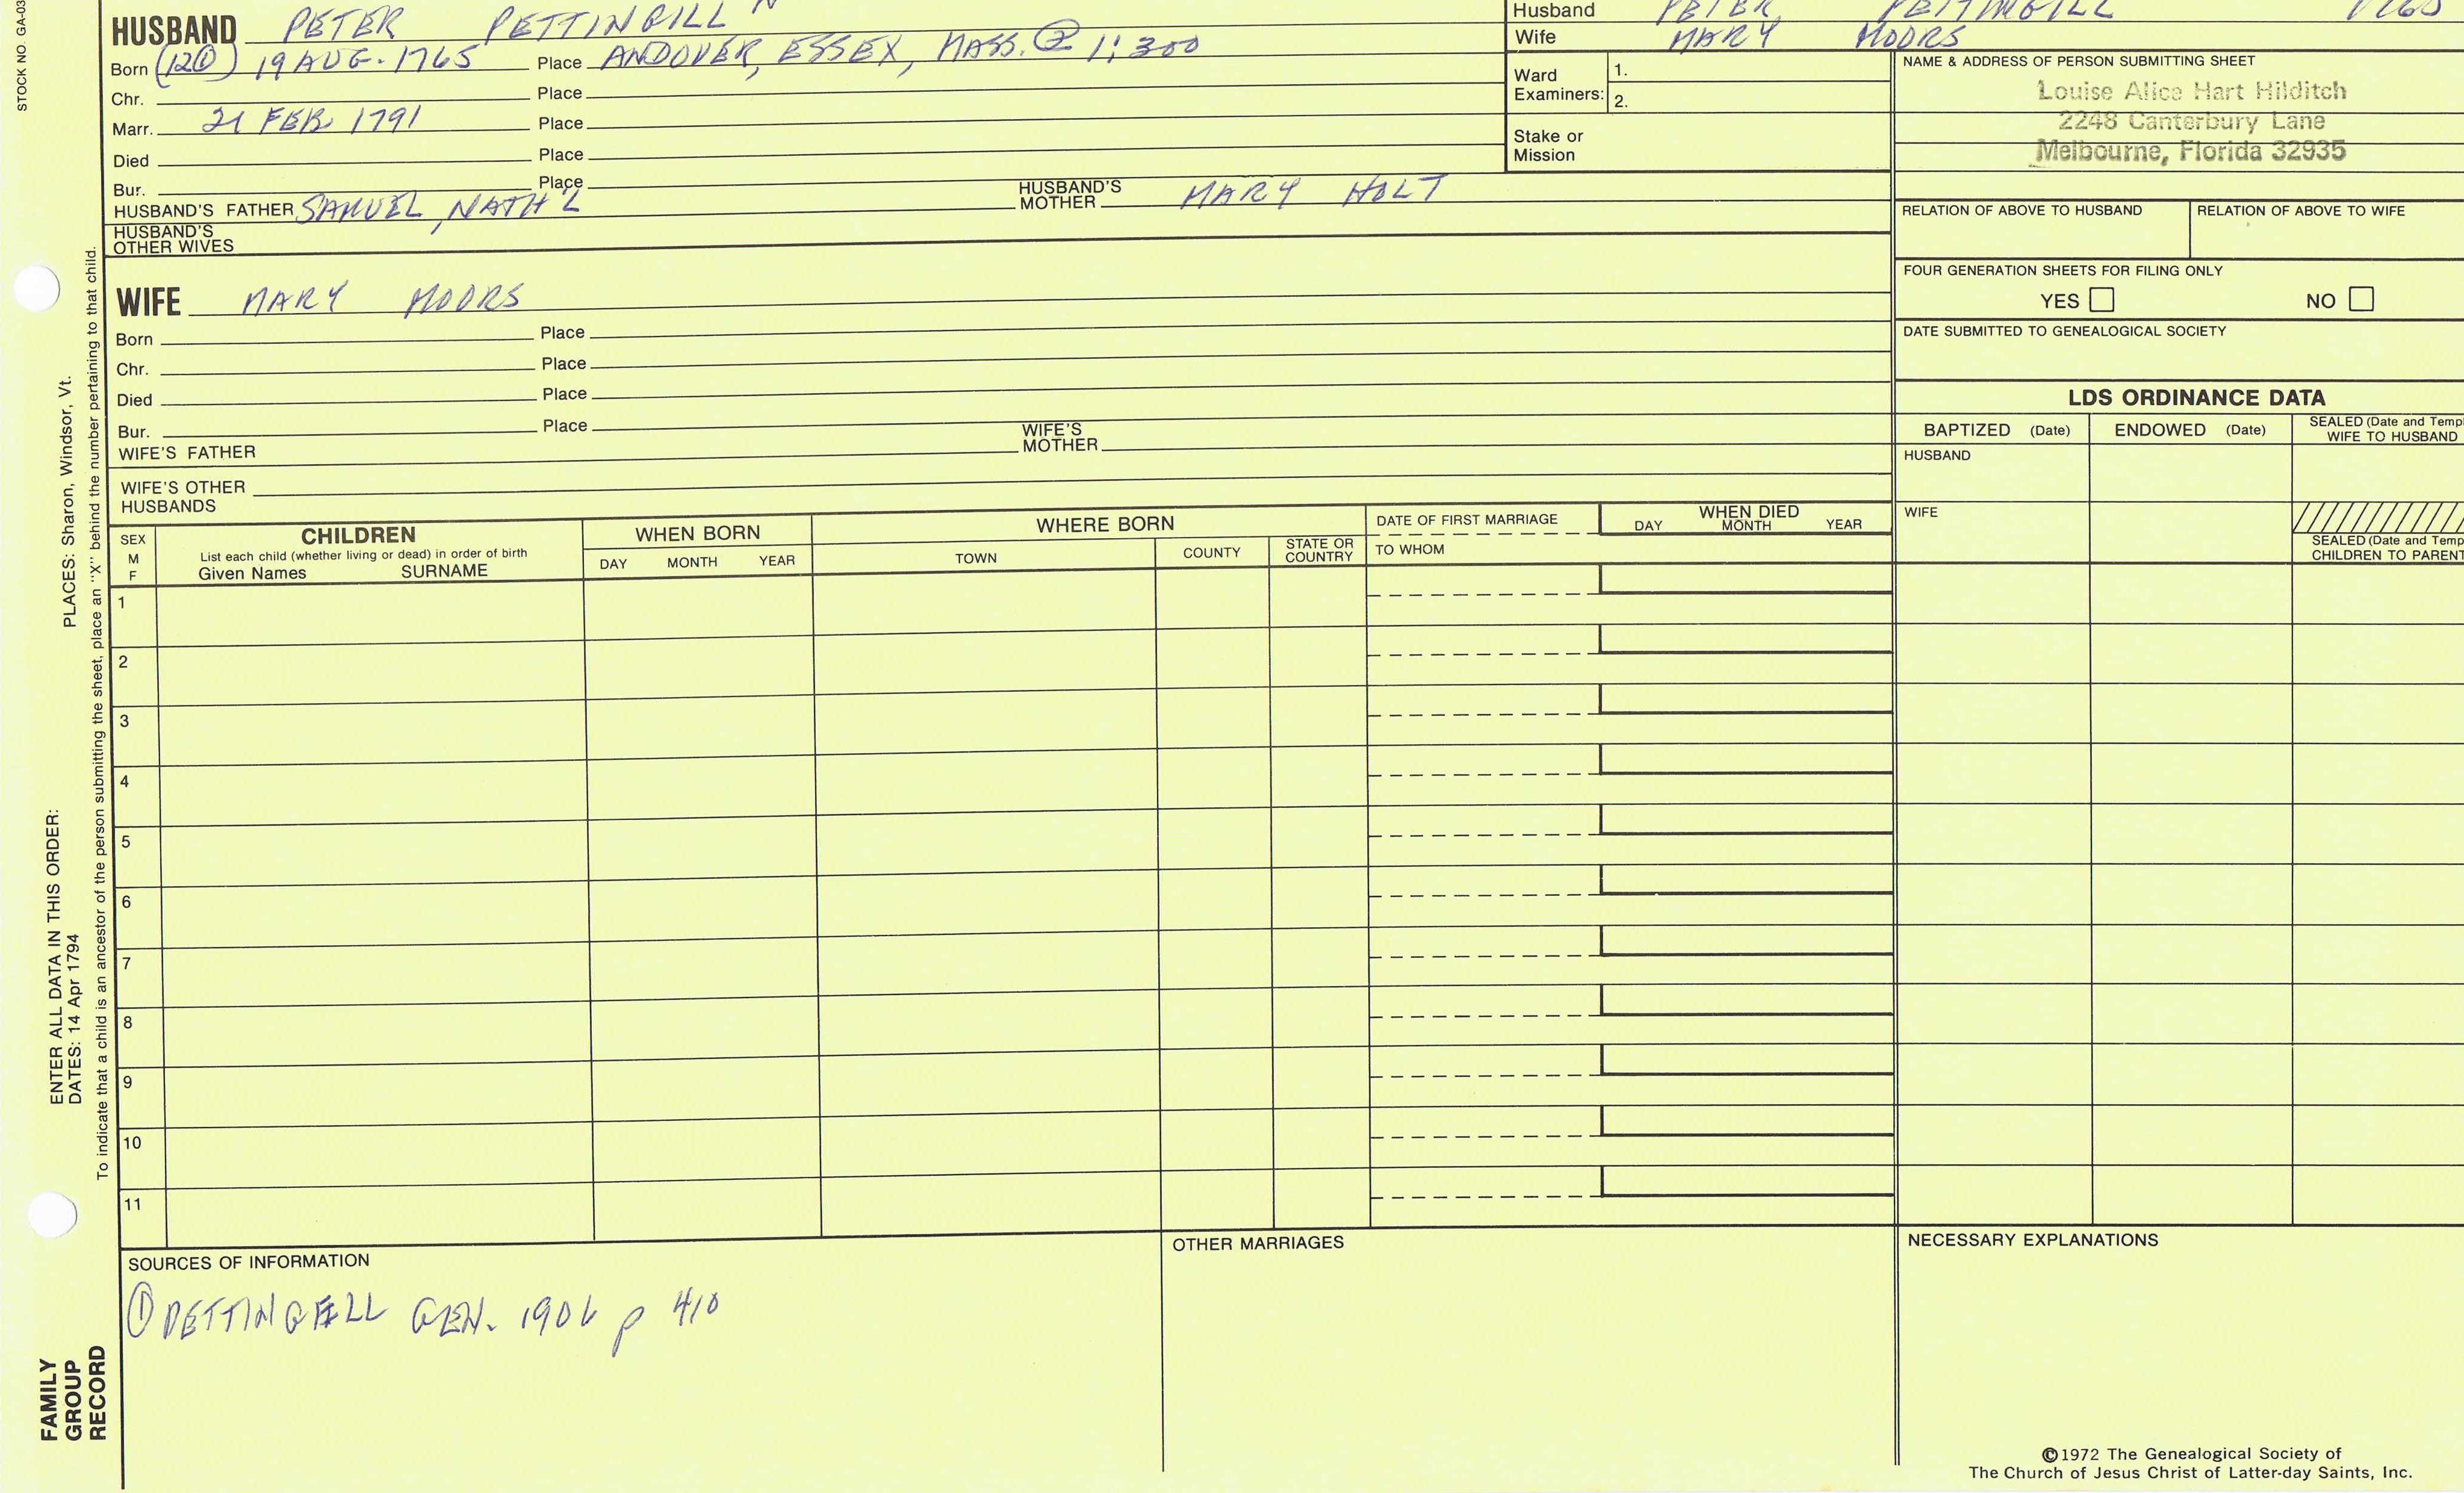 STOCK NO. GA-03
HUSBAND PETER PETTINGILL
Born (12①) 19 AUG. 1765 Place ANDOVER, ESSEX, MASS. ② 1:300
Chr. Place
Marr. 21 FEB 1791 Place
Died Place
Bur. Place
HUSBAND'S FATHER SAMUEL, NATH'L HUSBAND'S MOTHER MARY HOLT
HUSBAND'S OTHER WIVES
WIFE MARY MOORS
Born Place
Chr. Place
Died Place
Bur. Place
WIFE'S FATHER WIFE'S MOTHER
WIFE'S OTHER HUSBANDS
Husband PETER PETTINGILL 1765
Wife MARY MOORS
Ward Examiners: 1.
2.
Stake or Mission
NAME & ADDRESS OF PERSON SUBMITTING SHEET
Louise Alice Hart Hilditch
2248 Canterbury Lane
Melbourne, Florida 32935
RELATION OF ABOVE TO HUSBAND RELATION OF ABOVE TO WIFE
FOUR GENERATION SHEETS FOR FILING ONLY
YES NO
DATE SUBMITTED TO GENEALOGICAL SOCIETY
LDS ORDINANCE DATA
BAPTIZED (Date) ENDOWED (Date) SEALED (Date and Templ
WIFE TO HUSBAND
HUSBAND
WIFE
SEALED (Date and Temp
CHILDREN TO PARENT
SEX M F
CHILDREN
List each child (whether living or dead) in order of birth
Given Names SURNAME
WHEN BORN
DAY MONTH YEAR
WHERE BORN
TOWN COUNTY STATE OR COUNTRY
DATE OF FIRST MARRIAGE
TO WHOM
WHEN DIED
DAY MONTH YEAR
1
2
3
4
5
6
7
8
9
10
11
SOURCES OF INFORMATION
① PETTINGELL GEN. 1906 p 410
OTHER MARRIAGES
NECESSARY EXPLANATIONS
©1972 The Genealogical Society of
The Church of Jesus Christ of Latter-day Saints, Inc.
ENTER ALL DATA IN THIS ORDER:
DATES: 14 Apr 1794 PLACES: Sharon, Windsor, Vt.
To indicate that a child is an ancestor of the person submitting the sheet, place an "X" behind the number pertaining to that child.
FAMILY
GROUP
RECORD